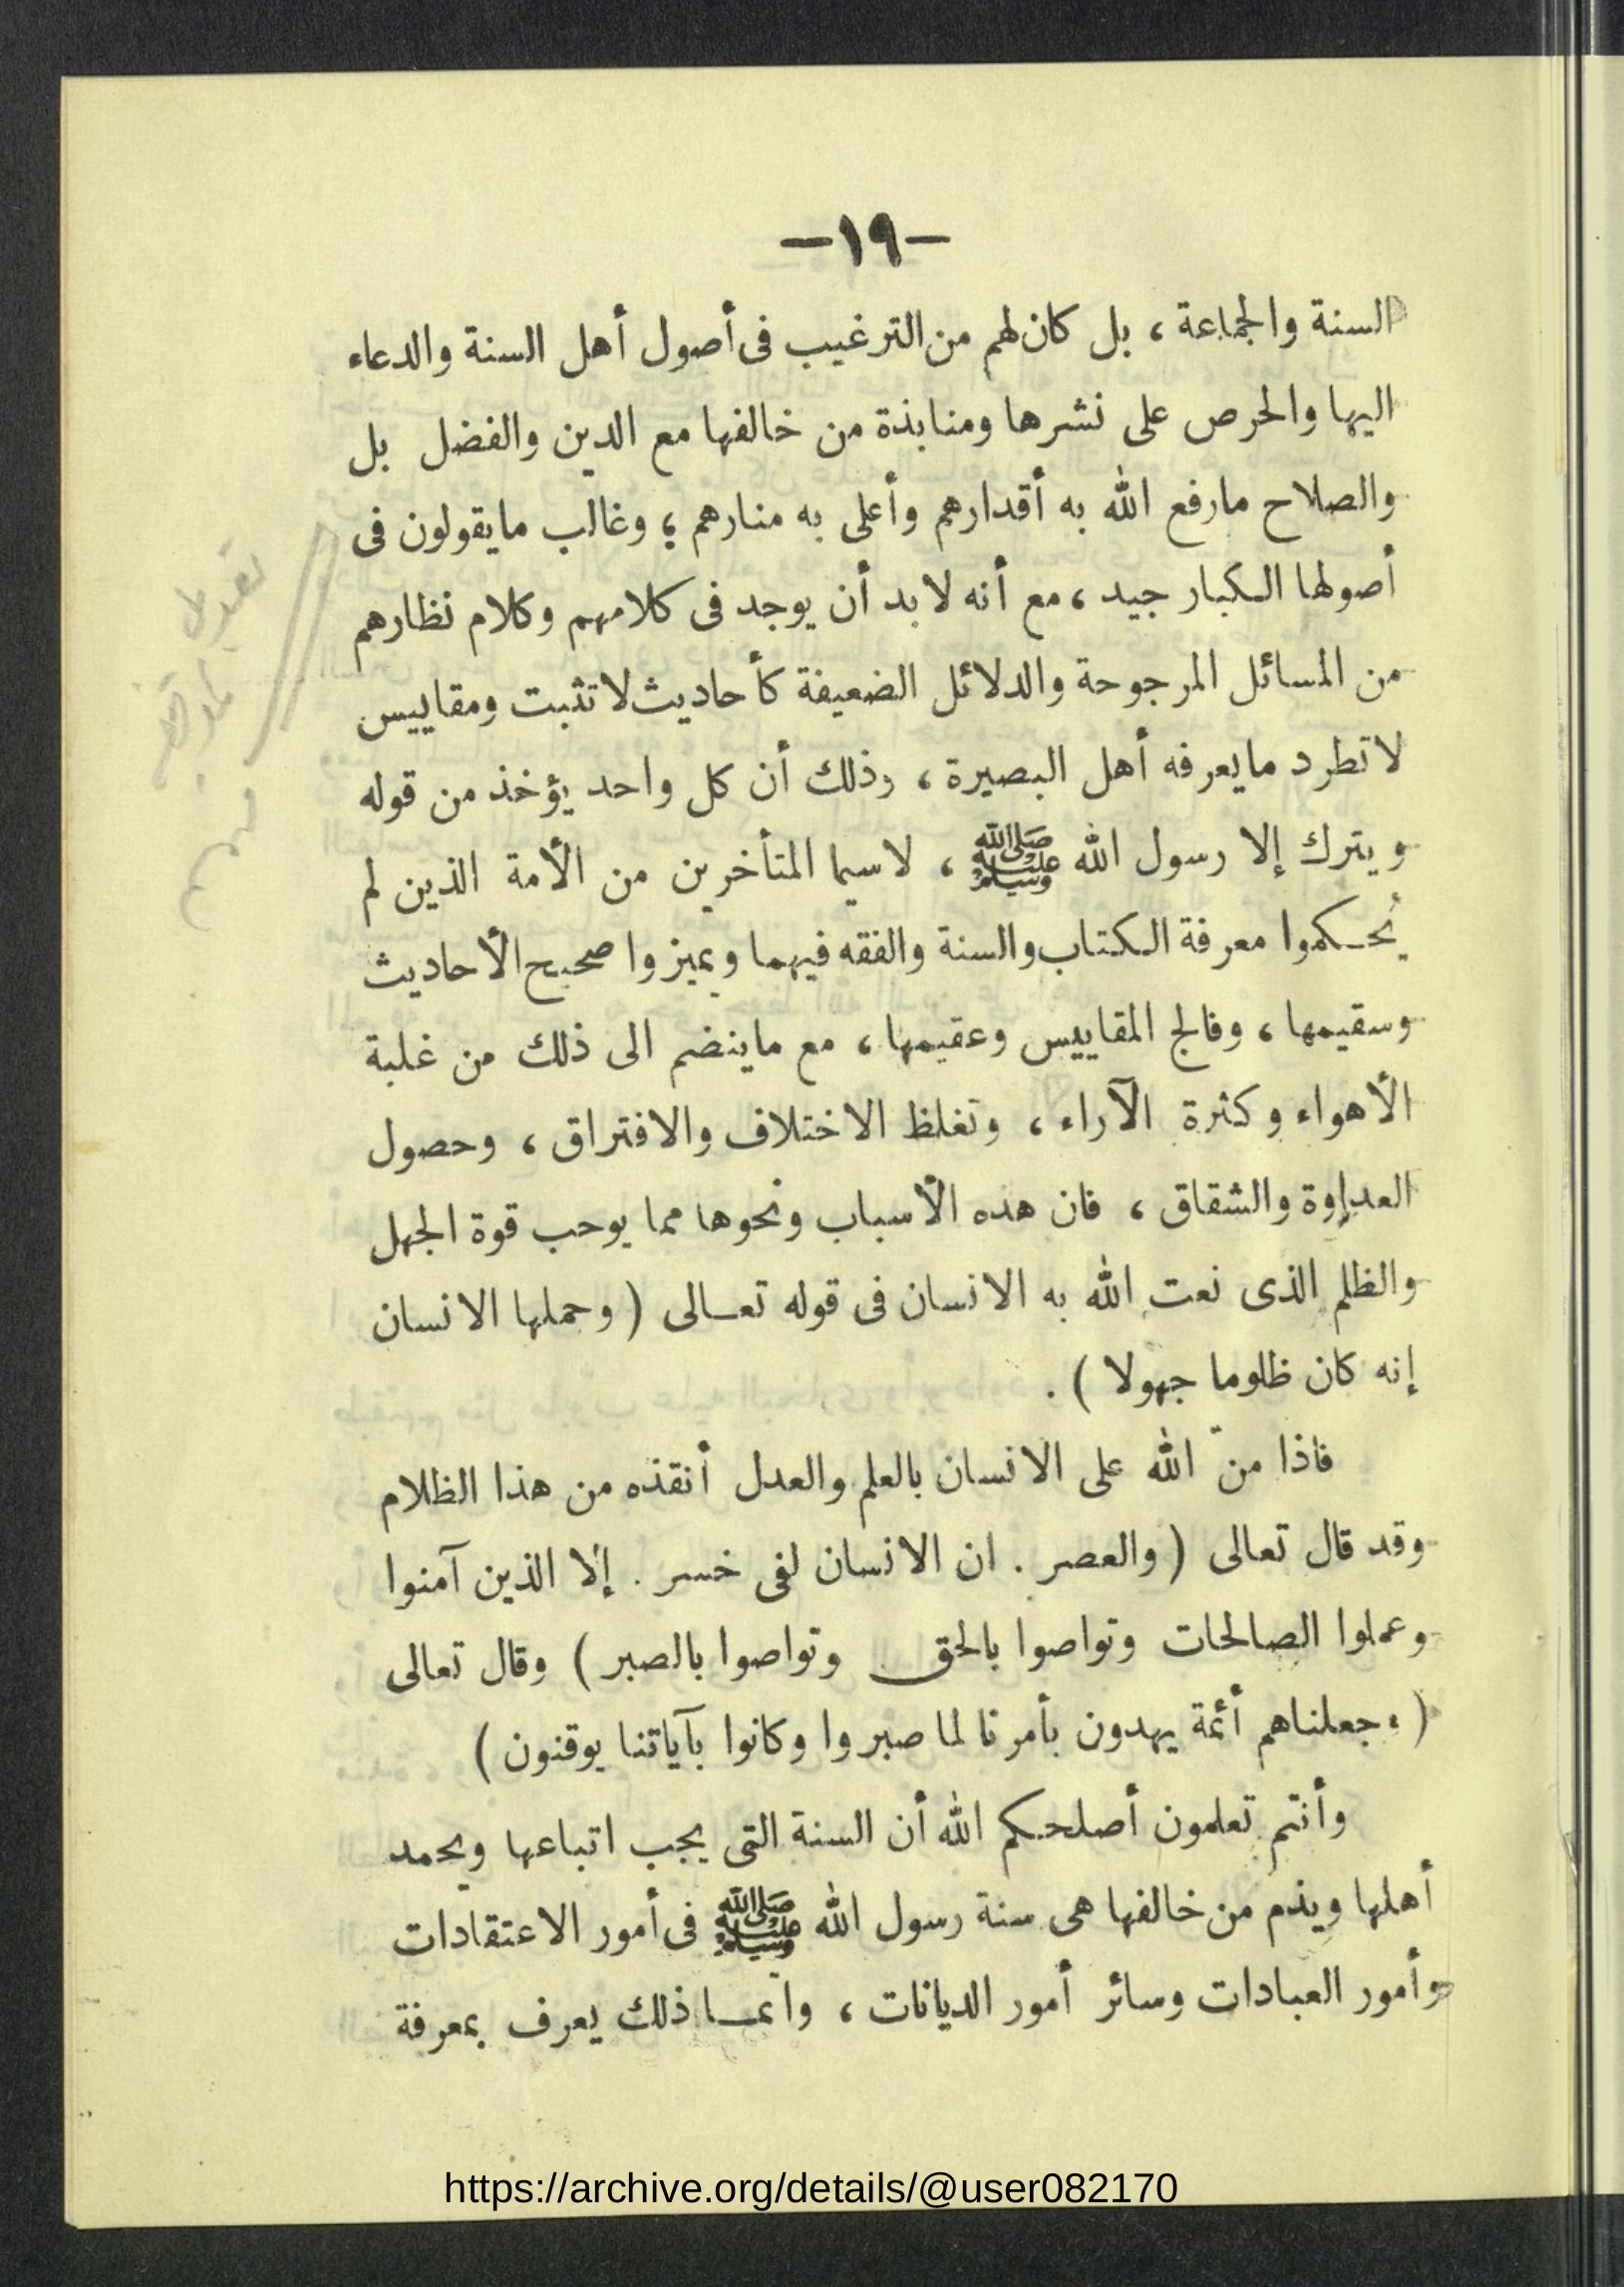 -١٩-
السنة والجماعة ، بل كان لهم من الترغيب فى أصول أهل السنة والدعاء
اليها والحرص على نشرها ومنابذة من خالفها مع الدين والفضل بل
والصلاح مارفع الله به أقدارهم وأعلى به منارهم ؛ وغالب مايقولون فى
أصولها الكبار جيد ، مع أنه لا بد أن يوجد فى كلامهم وكلام نظارهم
من المسائل المرجوحة والدلائل الضعيفة كأحاديث لا تثبت ومقاييس
لا تطرد مايعرفه أهل البصيرة ، وذلك أن كل واحد يؤخذ من قوله
ويترك إلا رسول الله ﷺ ، لاسيما المتأخرين من الأمة الذين لم
يُحكموا معرفة الكتاب والسنة والفقه فيهما ويميزوا صحيح الأحاديث
وسقيمها ، وفالج المقاييس وعقيمها ، مع ماينضم الى ذلك من غلبة
الأهواء وكثرة الآراء ، وتغلظ الاختلاف والافتراق ، وحصول
العداوة والشقاق ، فان هذه الأسباب ونحوها مما يوحب قوة الجهل
والظلم الذى نعت الله به الانسان فى قوله تعالى ( وحملها الانسان
إنه كان ظلوما جهولا ) .
فاذا منّ الله على الانسان بالعلم والعدل أنقذه من هذا الظلام
وقد قال تعالى ( والعصر . ان الانسان لفى خسر . إلا الذين آمنوا
وعملوا الصالحات وتواصوا بالحق وتواصوا بالصبر ) وقال تعالى
( وجعلناهم أئمة يهدون بأمرنا لما صبروا وكانوا بآياتنا يوقنون )
وأنتم تعلمون أصلحكم الله أن السنة التى يجب اتباعها ويحمد
أهلها ويذم من خالفها هى سنة رسول الله ﷺ فى أمور الاعتقادات
وأمور العبادات وسائر أمور الديانات ، وانما ذلك يعرف بمعرفة
https://archive.org/details/@user082170